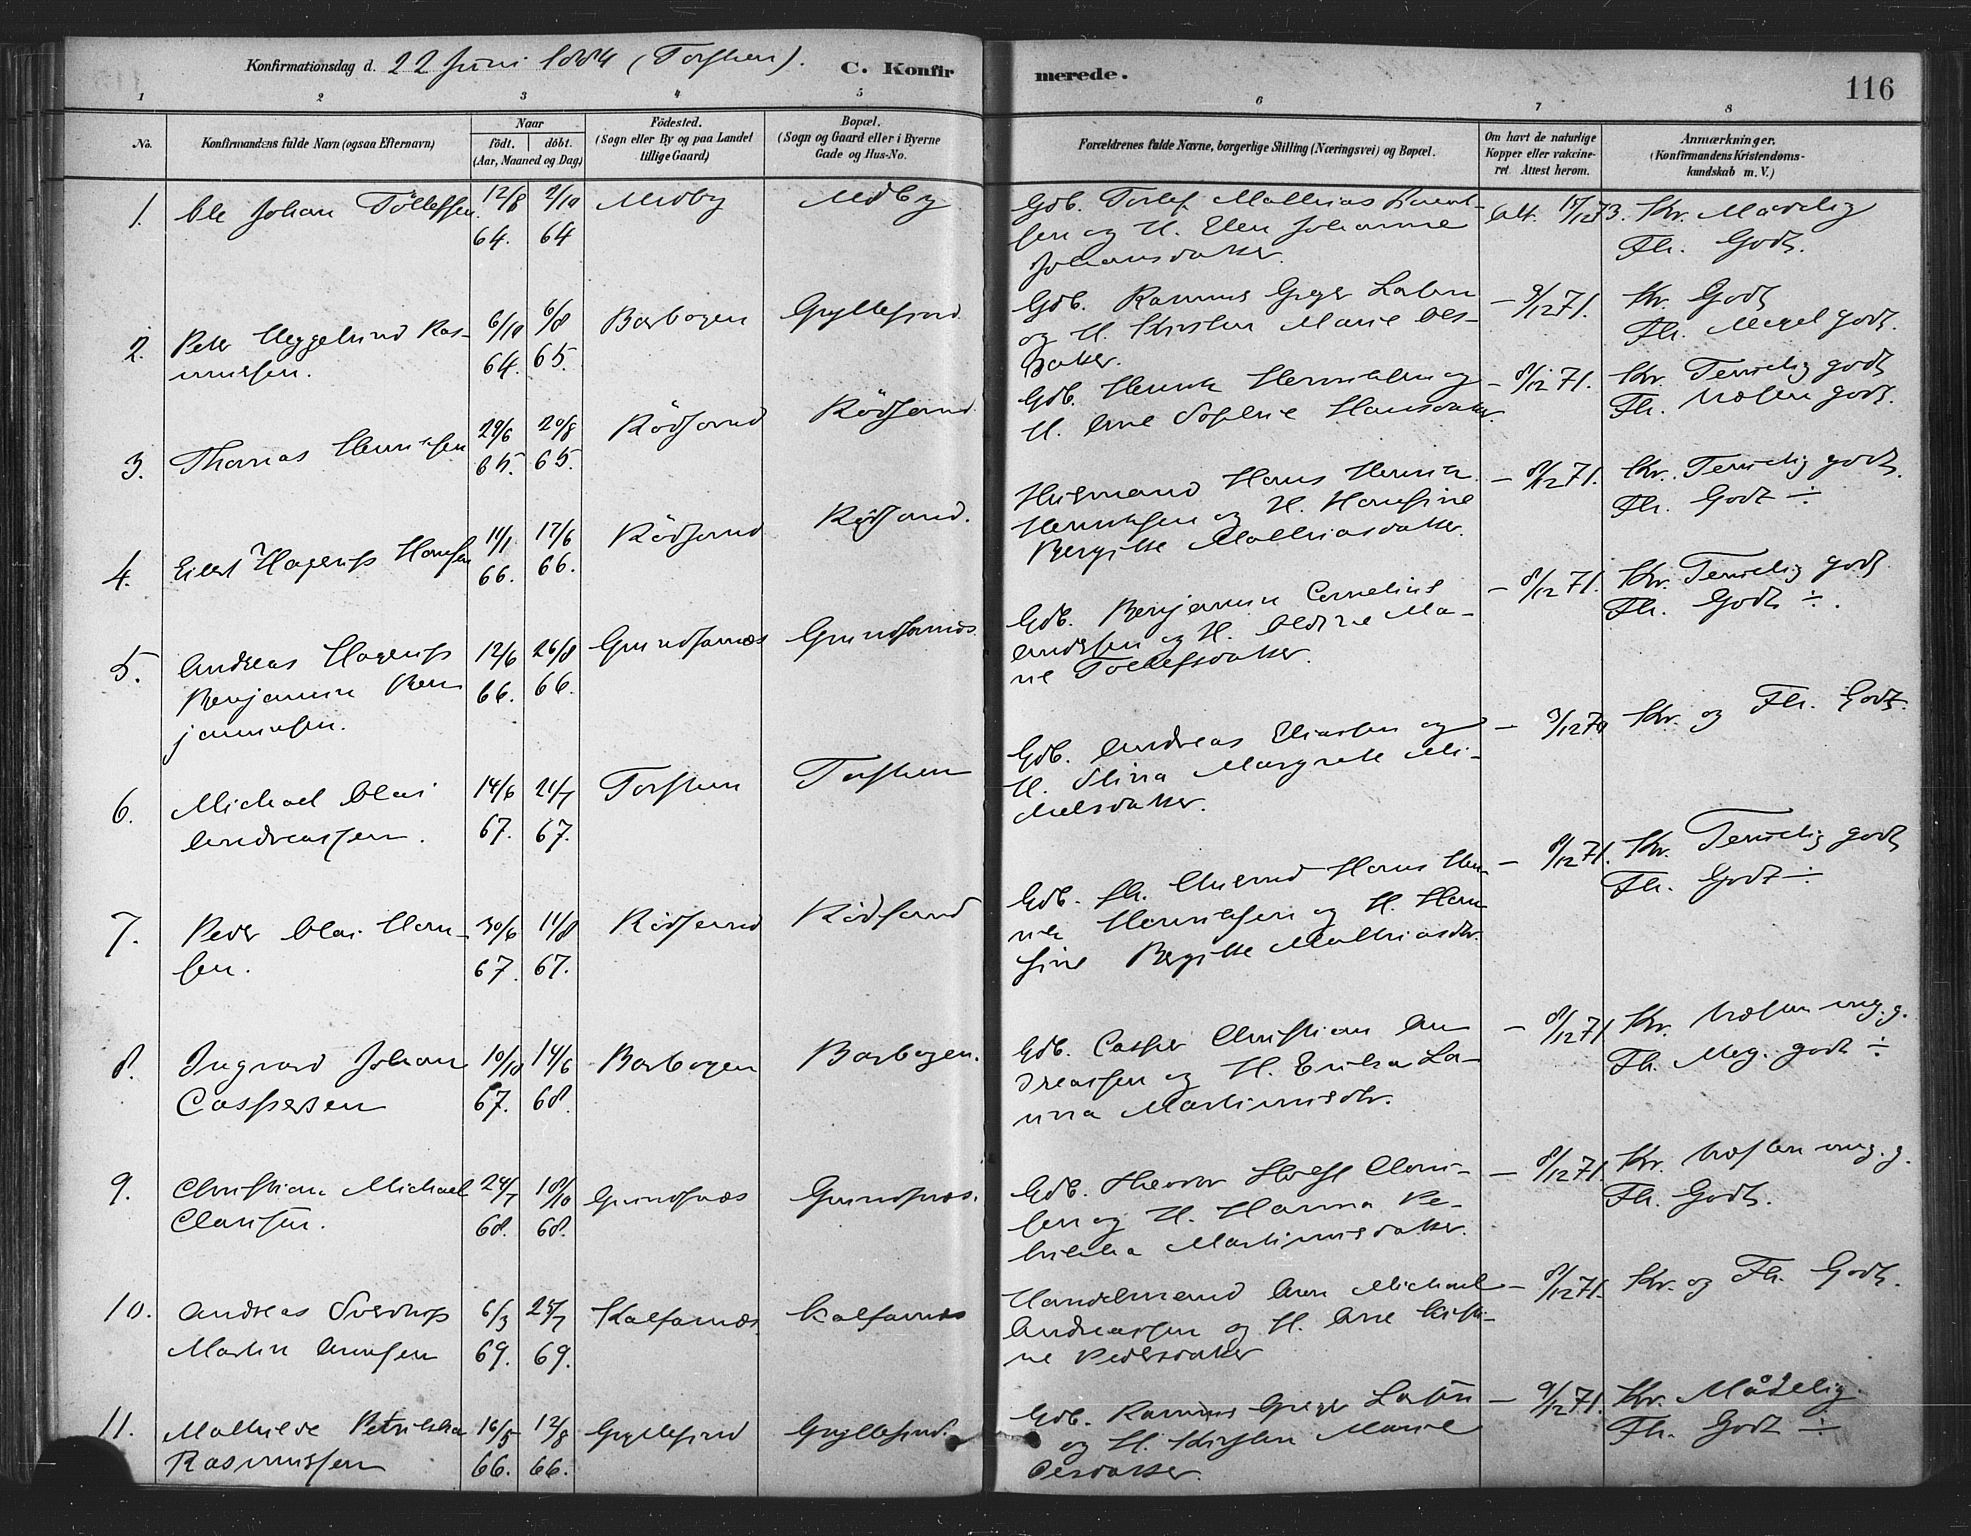 Konfirmationsdag d. 22 Juni 1884 (Torsken). C. Konfirmerede. 116
1 2 3 4 5 6 7 8
No. Konfirmandens fulde Navn (ogsaa Efternavn) Naar født. døbt. (Aar, Maaned og Dag) Fødested. (Sogn eller By og paa Landet tillige Gaard) Bopæl. (Sogn og Gaard eller i Byerne Gade og Hus-No. Forældrenes fulde Navne, borgerlige Stilling (Næringsvei) og Bopæl. Om havt de naturlige Kopper eller vakcineret. Attest herom. Anmærkninger. (Konfirmandens Kristendomskundskab m. V.)
1. Ole Johan Tollefsen 12/8 64. 2/10 64 Medby Medby
Gdb. Tollef Mathias
sen og H. Elen Johanne
Johansdatter.
Att. 17/12 73. Kr. Maadelig
Fl. Godt.
2. Peter Heggelund Ras-
mussen. 6/10 64. 6/8 65. Borbogen Gryllefjord
Gdb. Rasmus Greger
og H. Kirsten Marie Oles-
datter.
— 9/12 71. Kr. Godt
Fl. Meget godt.
3. Thomas Henriksen 29/6 65. 20/8 65. Rödsand Rödsand
Gdb. Henrik Henriksen og
H. Ane Sophie Hansdatter.
— 8/12 71. Kr. Temelig godt
Fl. Næsten godt.
4. Eilert Hagerup Hansen 11/1 66. 17/6 66. Rödsand Rödsand.
Husmand Hans Henrik
Henriksen og H. Hansine
Bergitte Mathiasdatter.
— 8/12 71. Kr. Temelig godt
Fl. Godt ÷
5. Andreas Hagerup
Benjamin Ben
jaminsen. 12/6 66. 26/8 66. Grundfarnæs Grundfarnæs.
Gdb. Benjamin Cornelius
Andersen og H. Oldine Ma-
rie Tollefsdatter.
— 8/12 71. Kr. Temelig godt
Fl. Godt ÷.
6. Michael Olai
Andreassen. 14/6 67. 21/7 67. Torsken Torsken
Gdb. Andreas Eliassen og
H. Stina Margrete Mi-
chelsdatter.
— 3/12 70 Kr. og Fl. Godt.
7. Peder Olai Han-
sen. 30/6 67. 11/8 67. Rödsand Rödsand
Gdb. fh. Husmd Hans Hen-
rik Henriksen og H. Han
sine Bergitte Mathiasdtr.
— 8/12 71. Kr. Temelig godt
Fl. Godt ÷
8. Ingvard Johan
Caspersen 10/10 67. 14/6 68. Borbogen Borbogen.
Gdb. Casper Christian An
dreassen og H. Erikka La-
vina Martinusdtr.
— 8/12 71 Kr. Næsten mg. g.
Fl. Meg. godt ÷
9. Christian Michael
Clausen. 24/7 68. 18/10 68. Grundfnæs Grundfnæs.
Gdb. Holst Clau-
sen og H. Hanna Pe-
trikka Martinusdatter.
— 8/12 71. Kr. Næsten mg. g.
Fl. Godt.
10. Andreas Sverdrup
Martin Arnesen 6/3 69. 25/7 69. Kalfarnæs. Kalfarnæs
Handelsmand Aron Michael
Andreassen og H. Ane Kirsti-
ne Pedersdatter
— 8/12 71. Kr. og Fl. Godt.
11. Mathilde Petrikka
Rasmussen 16/5 66. 12/8 66. Gryllefjord Gryllefjord.
Gdb. Rasmus Greger
og H. Kirsten Marie
Olesdatter.
— 9/12 71. Kr. Mådelig.
Fl. Godt ÷